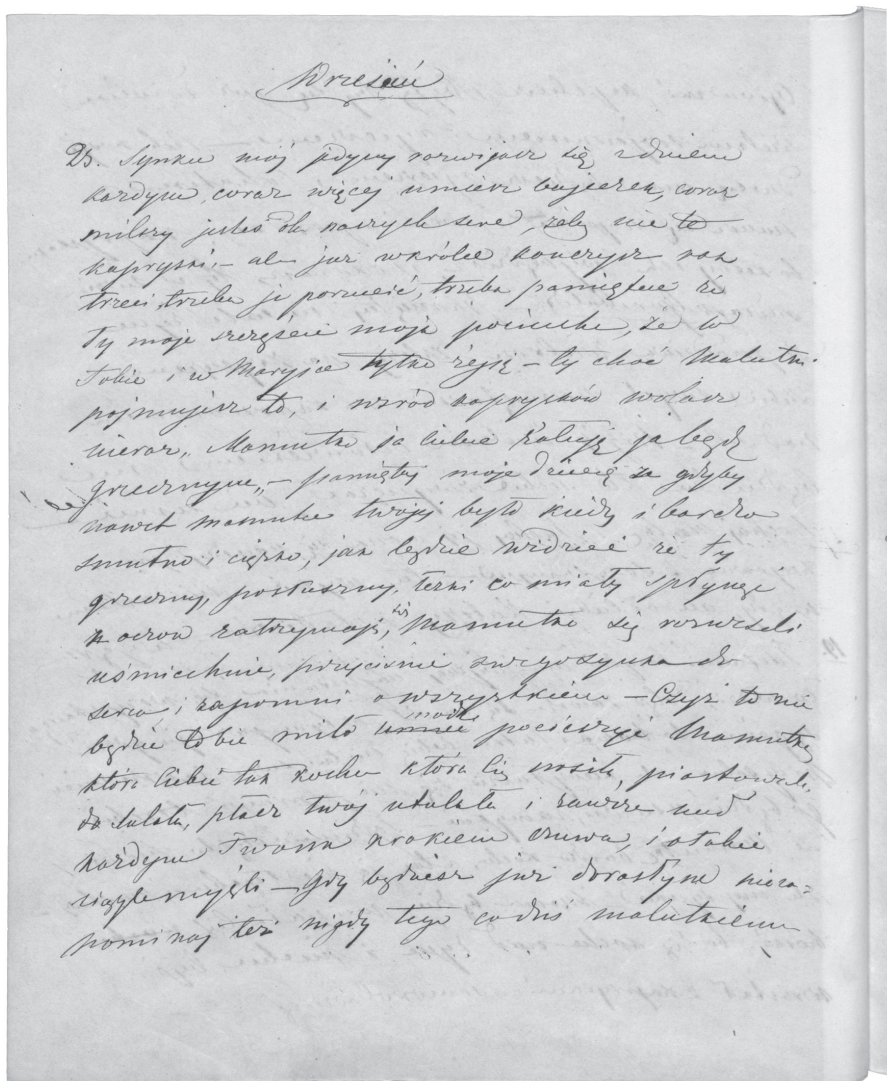 Wrzesień
23. Synku mój jedyny rozwijasz się z dniem
każdym, coraz więcej umiesz bajeczek, coraz
milszy jesteś dla naszych serc, żeby nie te
kapryski – ale już wkrótce kończysz rok
trzeci, trzeba je porzucić, trzeba pamiętać że
ty moje szczęście moja pociecha, że w
Tobie i w Maryjce tylko żyję – ty choć malutki
pojmujesz to, i wśród kaprysków wołasz
nieraz „Mamutko ja Ciebie żałuję ja będę
grzecznym„ – pamiętaj moje dziecię że gdyby
nawet mamutce twojej było kiedy i bardzo
smutno i ciężko, jak będzie widzieć że ty
grzeczny, posłuszny, łezki co miały spłynąć
z oczów zatrzymają się, Mamutka się rozweseli
uśmiechnie, przyciśnie swego synka do
serca, i zapomni o wszystkiem – Czyż to nie
będzie Tobie miło módz pocieszyć Mamutkę
która Ciebie tak kocha która Cię nosiła, piastowała,
lulała, płacz twój utulała i zawsze nad
każdym Twoim krokiem czuwa, i o tobie
ciągle myśli – Gdy będziesz już dorosłym nieza-
pominaj też nigdy tego co dziś malutkiem